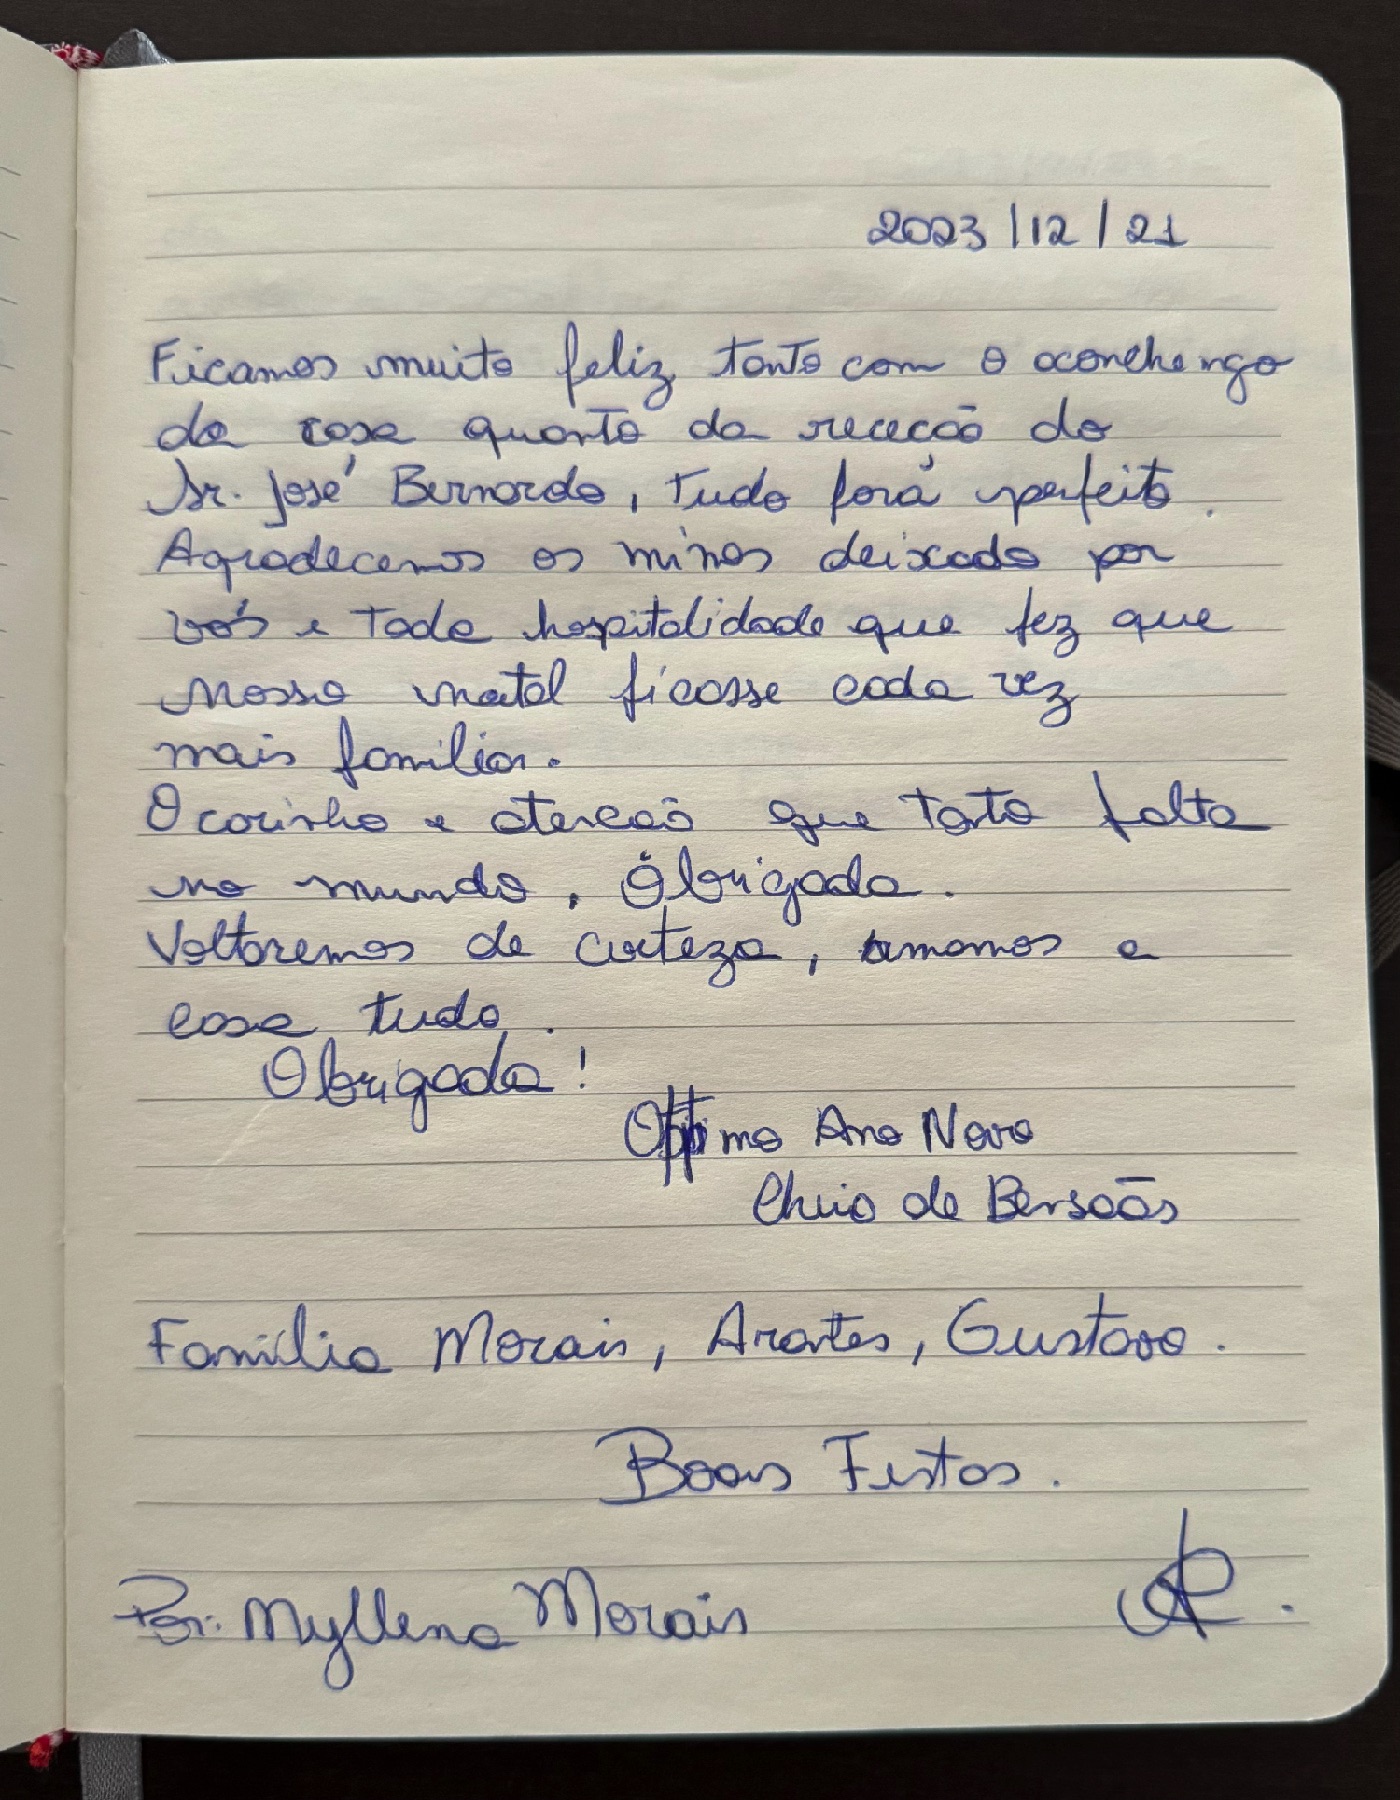 2023/12/21
Ficamos muito feliz tanto com o aconchengo
da casa quanto da receção do
Sr. José Bernardo, tudo forá perfeito.
Agradecemos os mimos deixado por
vós e toda hospitalidade que fez que
nosso natal ficasse cada vez
mais familiar.
O carinho e atenção que tanto falta
no mundo, Obrigada.
Voltaremos de certeza, amamos a
casa tudo.
Obrigada!
Óptimo Ano Novo
Cheio de Bensoãs
Família Morais, Arantes, Gustavo.
Boas Festas.
Por: Myllena Morais